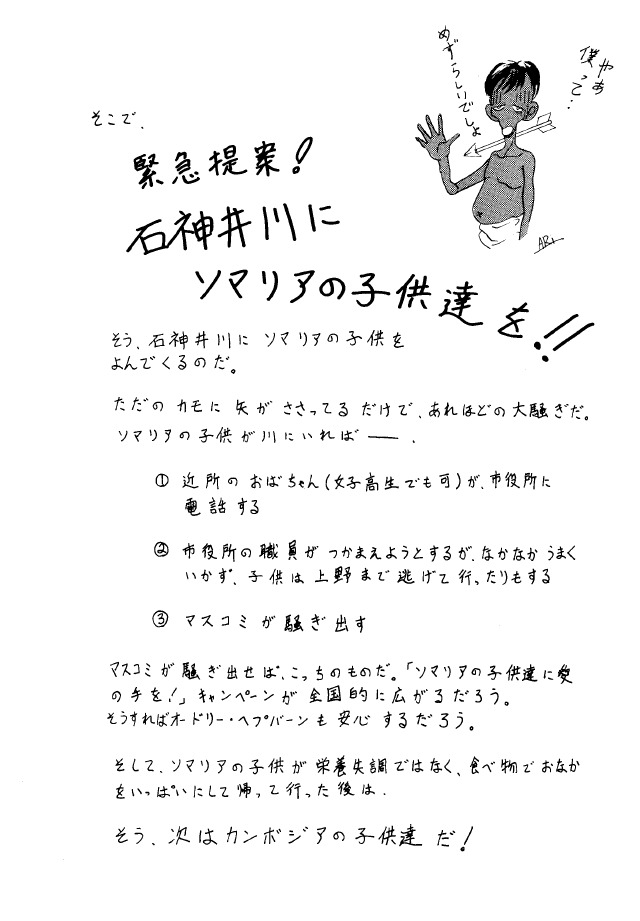 やあ
僕って‥
めずらしいでしょ
ARI
そこで、
緊急提案!
石神井川に
ソマリアの子供達を!!
そう、石神井川に ソマリアの子供を
よんでくるのだ。
ただの カモに 矢が ささってる だけで、あれほどの大騒ぎだ。
ソマリアの子供が川にいれば ――.
① 近所の おばちゃん(女子高生でも可)が、市役所に
電話する
② 市役所の職員が つかまえようとするが、なかなか うまく
いかず、子供は 上野まで 逃げて 行ったりもする
③ マスコミが 騒ぎ出す
マスコミが 騒ぎ出せば、こっちのものだ。「ソマリアの子供達に愛
の手を!」キャンペーンが 全国的に広がるだろう。
そうすればオードリー・ヘプバーンも 安心 するだろう。
そして、ソマリアの子供が 栄養失調ではなく、食べ物で おなか
をいっぱいにして 帰って 行った 後は、
そう、次は カンボジアの子供達 だ!